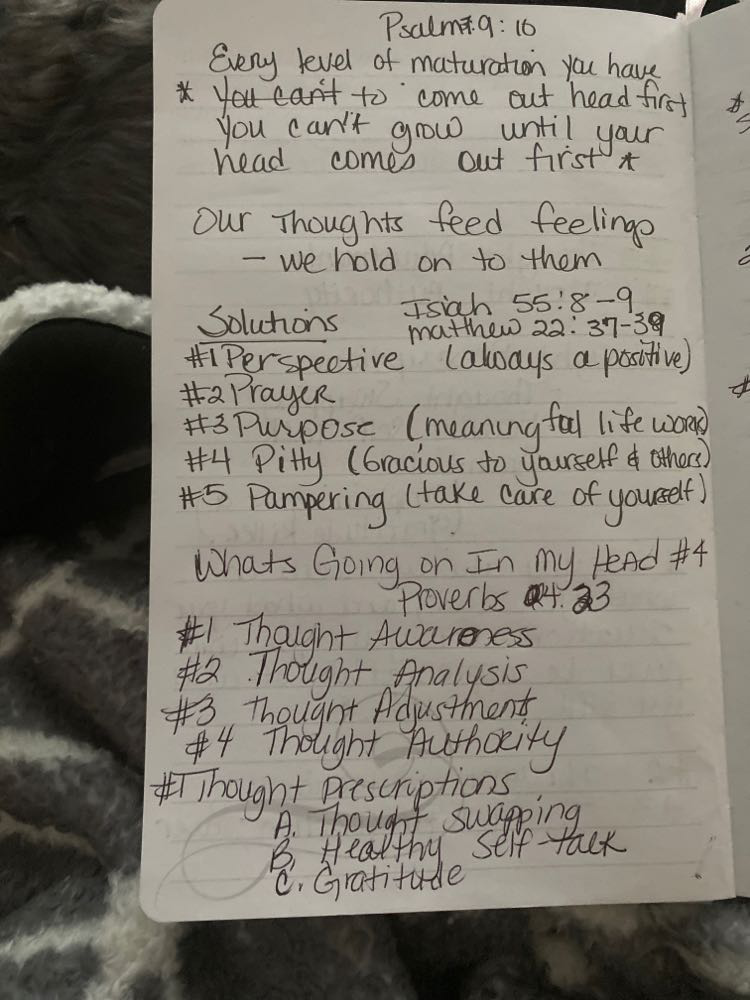 Psalm 9:10
Every level of maturation you have
* you can't to come out head first
you can't grow until your
head comes out first *
Our Thoughts feed feelings
- we hold on to them
Solutions Isiah 55:8-9
matthew 22:37-39
#1 Perspective (always a positive)
#2 Prayer
#3 Purpose (meaningful life work)
#4 Pitty (Gracious to yourself & others)
#5 Pampering (take care of yourself)
Whats Going on In my Head #4
Proverbs 4:23
#1 Thought Awareness
#2 Thought Analysis
#3 Thought Adjustment
#4 Thought Authority
#1 Thought Prescriptions
A. Thought swapping
B. Healthy self-talk
C. Gratitude